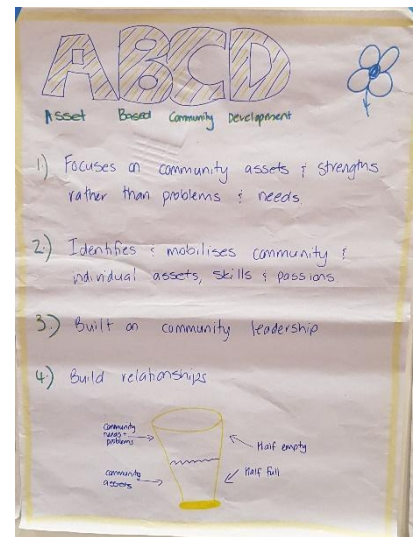 ABCD
Asset Based Community Development
1) Focuses on community assets & strengths
rather than problems & needs
2.) Identifies & mobilises community &
individual assets, skills & passions
3.) Built on community leadership
4.) Build relationships
community
needs +
problems
Half empty
community
assets
Half full